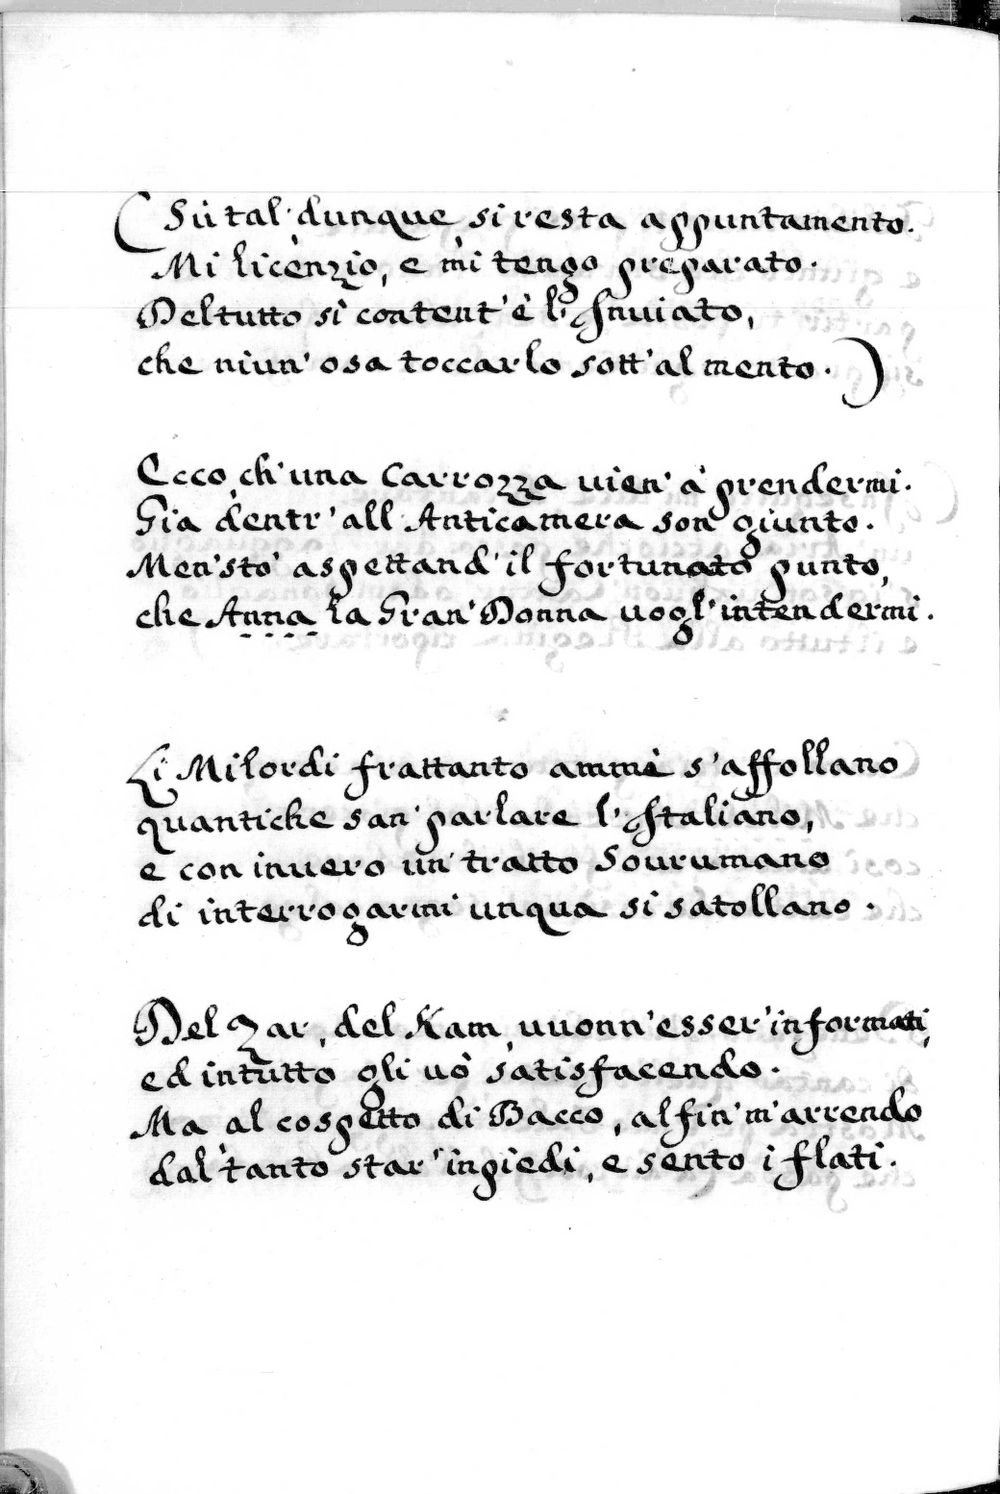 (Sù tal' dunque si resta appuntamento.
Mi licenzio, e mi tengo preparato.
Del tutto si content' è l'Inuiato,
che niun' osa toccarlo sott' al mento.)
Ecco ch' una Carrozza uien' à prendermi.
Gia dentr' all' Anticamera son' giunto.
Men' sto' aspettand' il fortunato punto,
che Anna la Gran' Donna uogl' intendermi.
Li Milordi frattanto ammè s'affollano
quantiche san' parlare l'Italiano,
e con inuero un' tratto Sourumano
di interrogarmi unqua si satollano.
Del Zar, del Kam, uuonn' esser' informati,
ed intutto gli uò satisfacendo.
Ma al cospetto di Bacco, alfin' m'arrendo
dal' tanto star' inpiedi, e sento i flati.